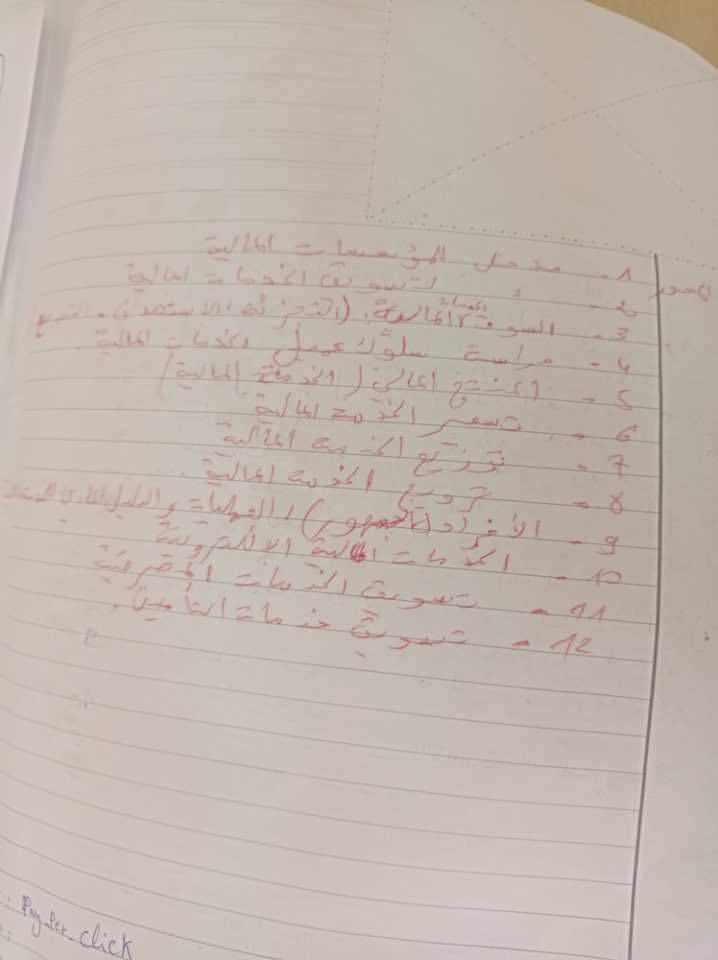 المحور
1 - مدخل للمؤسسات المالية
2 - " لتسويق الخدمات المالية
3 - السوق الخدمات المالية. (التجزئة، الاستهداف،
4 - دراسة سلوك عميل الخدمات المالية
5 - المنتج المالي (الخدمة المالية)
6 - تسعير الخدمة المالية
7 - توزيع الخدمة المالية
8 - ترويج الخدمة المالية
9 - الأفراد (الجمهور)، العمليات والدليل المادي
10 - الخدمات المالية الإلكترونية
11 - تسويق الخدمات المصرفية
12 - تسويق خدمات التأمين.
Pay-Per-click